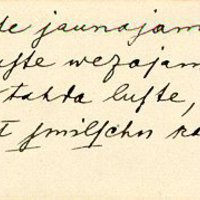 de jaunajam
uſte wezajam
tahda luſte,
t ſmilſchu ka